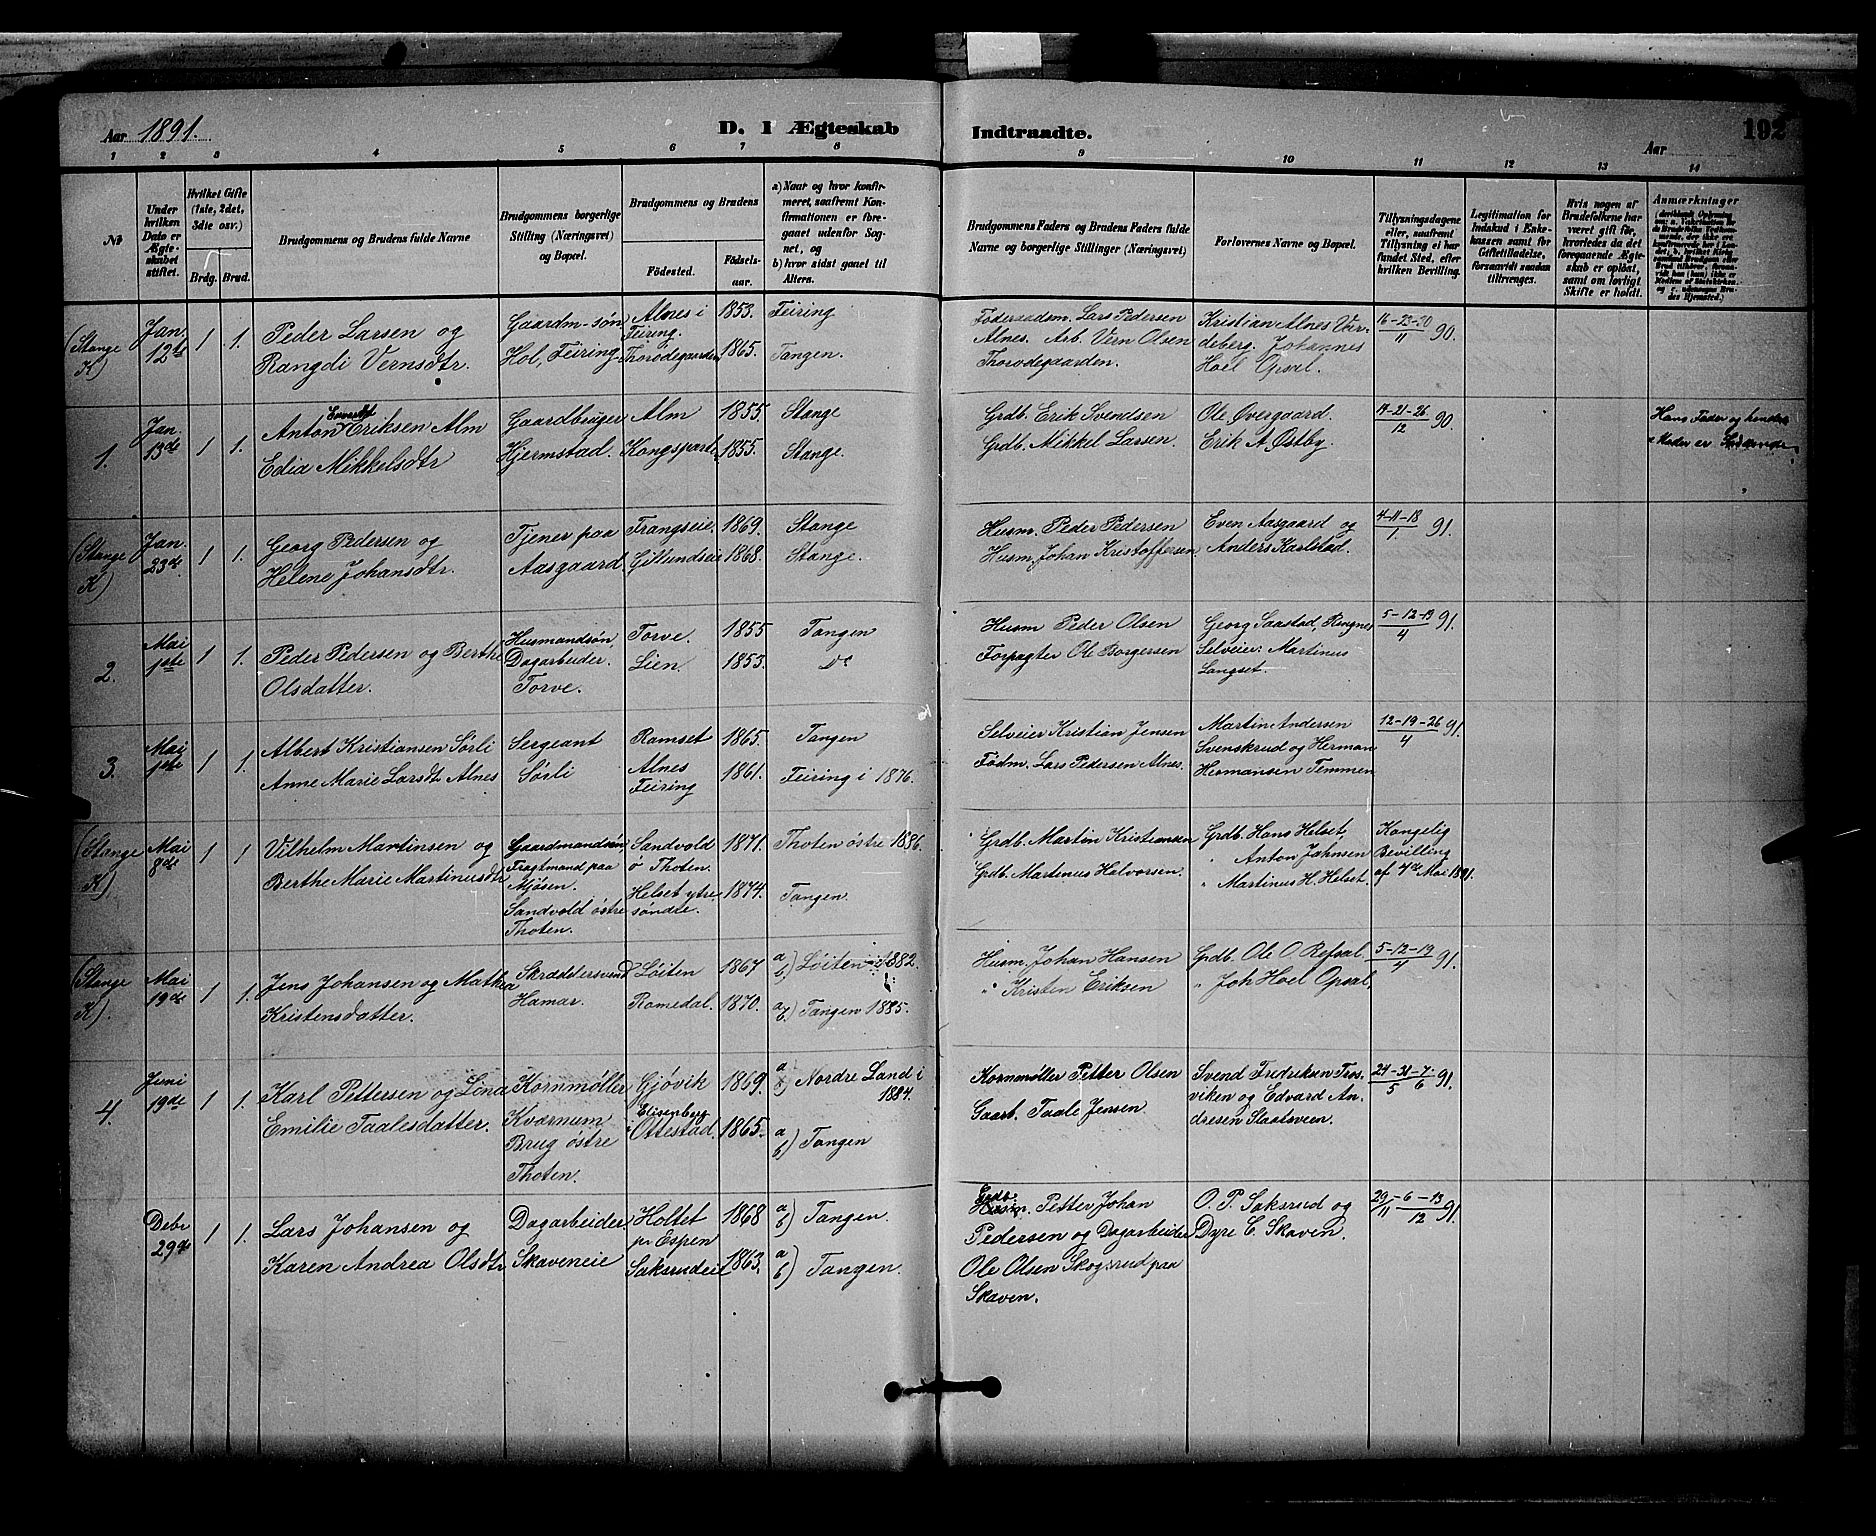 Aar 1891. D. I Ægteskab Indtraadte. Aar 192
1 2 3 4 5 6 7 8 9 10 11 12 13 14
No
Under hvilken Dato er Ægteskabet stiftet.
Hvilket Gifte (1ste, 2det, 3die osv.)
Brdg. Brud.
Brudgommens og Brudens fulde Navne
Brudgommens borgerlige Stilling (Næringsvei) og Bopæl.
Brudgommens og Brudens
Fødested. Fødselsaar.
a) Naar og hvor konfirmeret, saafremt Konfirmationen er foregaaet udenfor Sognet, og
b) hvor sidst gaaet til Alters.
Brudgommens Faders og Brudens Faders fulde Navne og borgerlige Stillinger (Næringsvei)
Forlovernes Navne og Bopæl.
Tillysningsdagene eller, saafremt Tillysning ei har fundet Sted, efter hvilken Bevilling.
Legitimation for Indskud i Enkekassen samt for Giftetilladelse, forsaavidt saadan tiltrænges.
Hvis nogen af Brudefolkene har været gift før, hvorledes da det foregaaende Ægteskab er opløst, samt om lovligt Skifte er holdt.
Anmærkninger
(Stange K) Jan. 12te 1 1. Peder Larsen og Gaardm-søn Alnes i Feiring. 1853. Feiring Føderaadsm. Lars Pedersen Kristian Alnes Var- 16-23-30/11 90.
Rangdi Vernsdtr. Hol, Feiring. Thorodegaarden 1865. Tangen. Alnes. Arb. Vern Olsen deberg. Johannes
Thorodegaarden. Hoel Opsal.
1. Jan. 13de 1 1. Anton Eriksen Alm Gaardbruger Alm 1855. Stange Grdb. Erik Svendsen Ole Øvergaard. 14-21-26/12 90. Hans Fader og hendes
Edia Mikkelsdtr Hjermstad. Kongsparte. 1855. Stange. Grdb. Mikkel Larsen Erik A. Østby. Moder er
(Stange K) Jan. 23de 1 1. Georg Pedersen og Tjener paa Frangseie. 1869. Stange Husm. Peder Pedersen Even Aasgaard og 4-11-18/1 91.
Helene Johansdtr. Aasgaard. Gillundseie 1868. Stange. Husm. Johan Kristoffersen Anders Karlstad.
2. Mai 1ste 1 1. Peder Pedersen og Berthe Husmandsøn, Torve. 1855 Tangen Husm Peder Olsen Georg Saastad, Ringnes 5-12-19/4 91.
Olsdatter. Dagarbeider. Lien. 1853. Do Forpagter Ole Borgersen Selveier Martinus
Torve. Langset.
3. Mai 1ste 1 1. Albert Kristiansen Sørli Sergeant Ramset 1865. Tangen Selveier Kristian Jensen Martin Andersen 12-19-26/4 91.
Anne Marie Larsdt. Alnes Sørli Alnes Feiring 1861. Feiring i 1876. Fødm. Lars Pedersen Alnes. Svenskrud og Herman
Hermansen Temmen
(Stange K). Mai 8de 1 1 Vilhelm Martinsen og Gaardmandsøn Sandvold 1871. Thoten østre 1886. Grdb. Martin Kristiansen Grdb. Hans Helset, Kongelig
Berthe Marie Martinusdtr Fragtmand paa ø Thoten. " Anton Jahnsen Bevilling
Mjøsen. Helset ytre 1874. Tangen. Grdb. Martinus Halvorsen. " Martinus H. Helset. af 7de Mai 1891.
Sandvold østre søndre.
Thoten.
(Stange K). Mai 19de 1 1. Jens Johansen og Mathea Skræddersvend Løiten 1867 a b) Løiten i 1882. Husm. Johan Hansen Grdb. Ole O. Refsal. 5-12-19/4 91.
Kristensdatter. Hamar. Romedal. 1870. a b) Tangen 1885. " Kristen Eriksen " Joh Hoel Opsal,
4. Juni 19de 1 1. Karl Pettersen og Lina Kornmøller Gjøvik 1869. a) Nordre Land i 1884. Kornmøller Petter Olsen Svend Fredriksen Fros- 24-31-7/5 6 91.
Emilie Taalesdatter. Kvernum Elisenberg i Ottestad. 1865. a b) Tangen Gaarb. Taale Jensen. viken og Edvard An-
Brug østre dresen Slaatsveen.
Thoten.
Debr 29de 1 1. Lars Johansen og Dagarbeider Holtet 1868 a b) Tangen. Grdb. Petter Johan O. P. Saksrud og 29/11-6-13/12 91.
Karen Andrea Olsdtr Skaveneie pr Espen Pedersen og Dagarbeider Dyre C. Skaven.
Saksrudeie 1863. a b) Tangen. Ole Olsen Skogsrud paa
Skaven.